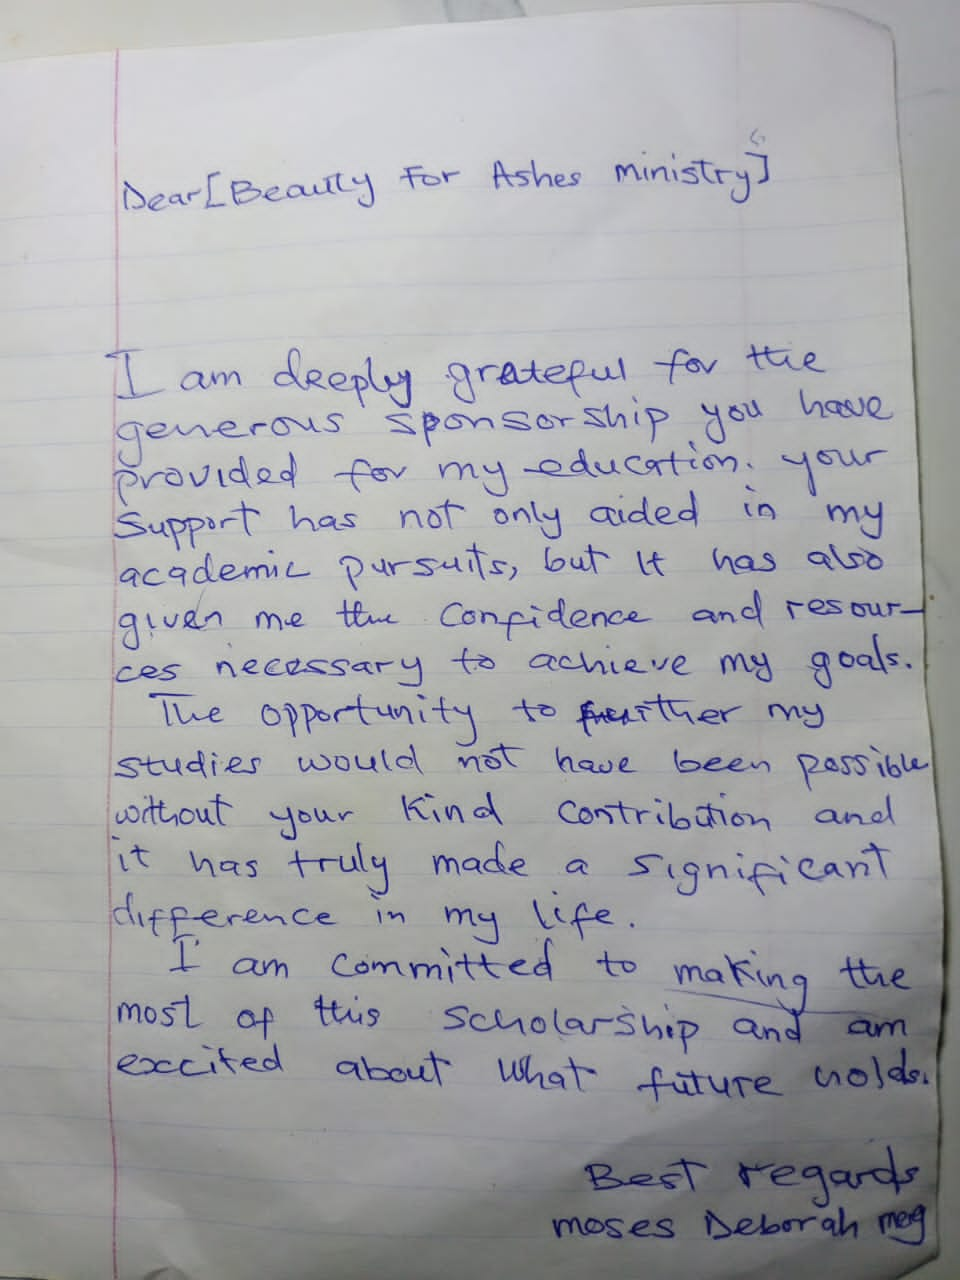 Dear [Beauty For Ashes ministry]
I am deeply grateful for the
generous sponsorship you have
provided for my education. your
Support has not only aided in my
academic pursuits, but It has also
given me the Confidence and resour-
ces necessary to achieve my goals.
The opportunity to further my
studies would not have been possible
without your Kind Contribution and
it has truly made a significant
difference in my life.
I am Committed to making the
most of this Scholarship and am
excited about what future holds.
Best regards
moses Deborah